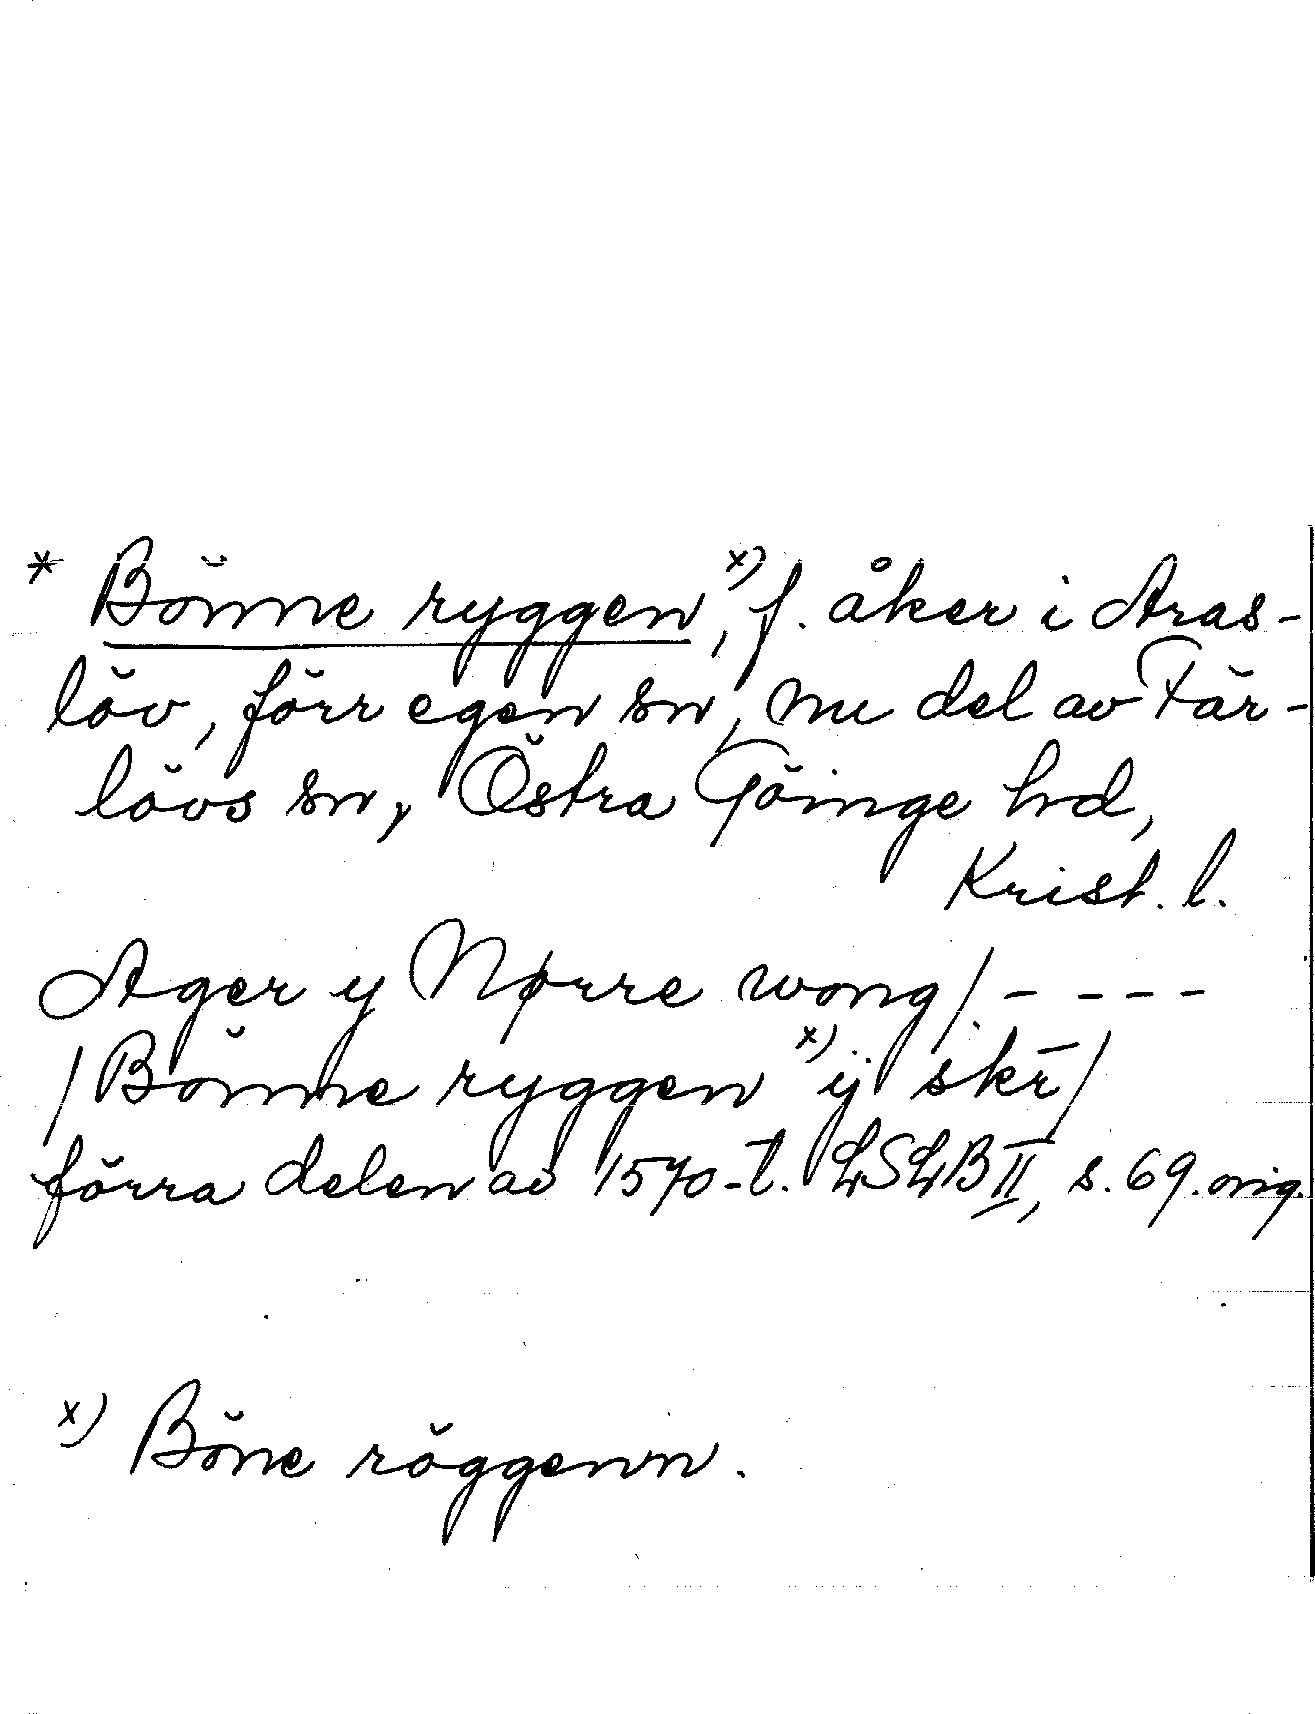 * Bönne ryggen,ˣ⁾ f. åker i Aras-
löv, förr egen sn, nu del av Fär-
lövs sn, Östra Göinge hd,
Krist. l.
Ager y Nørre wong/. - - - -
/Bönne ryggen ˣ⁾ ÿ skr̄/
förra delen av 1570-t. LSLB II, s. 69. orig.
x) Böne röggenn.